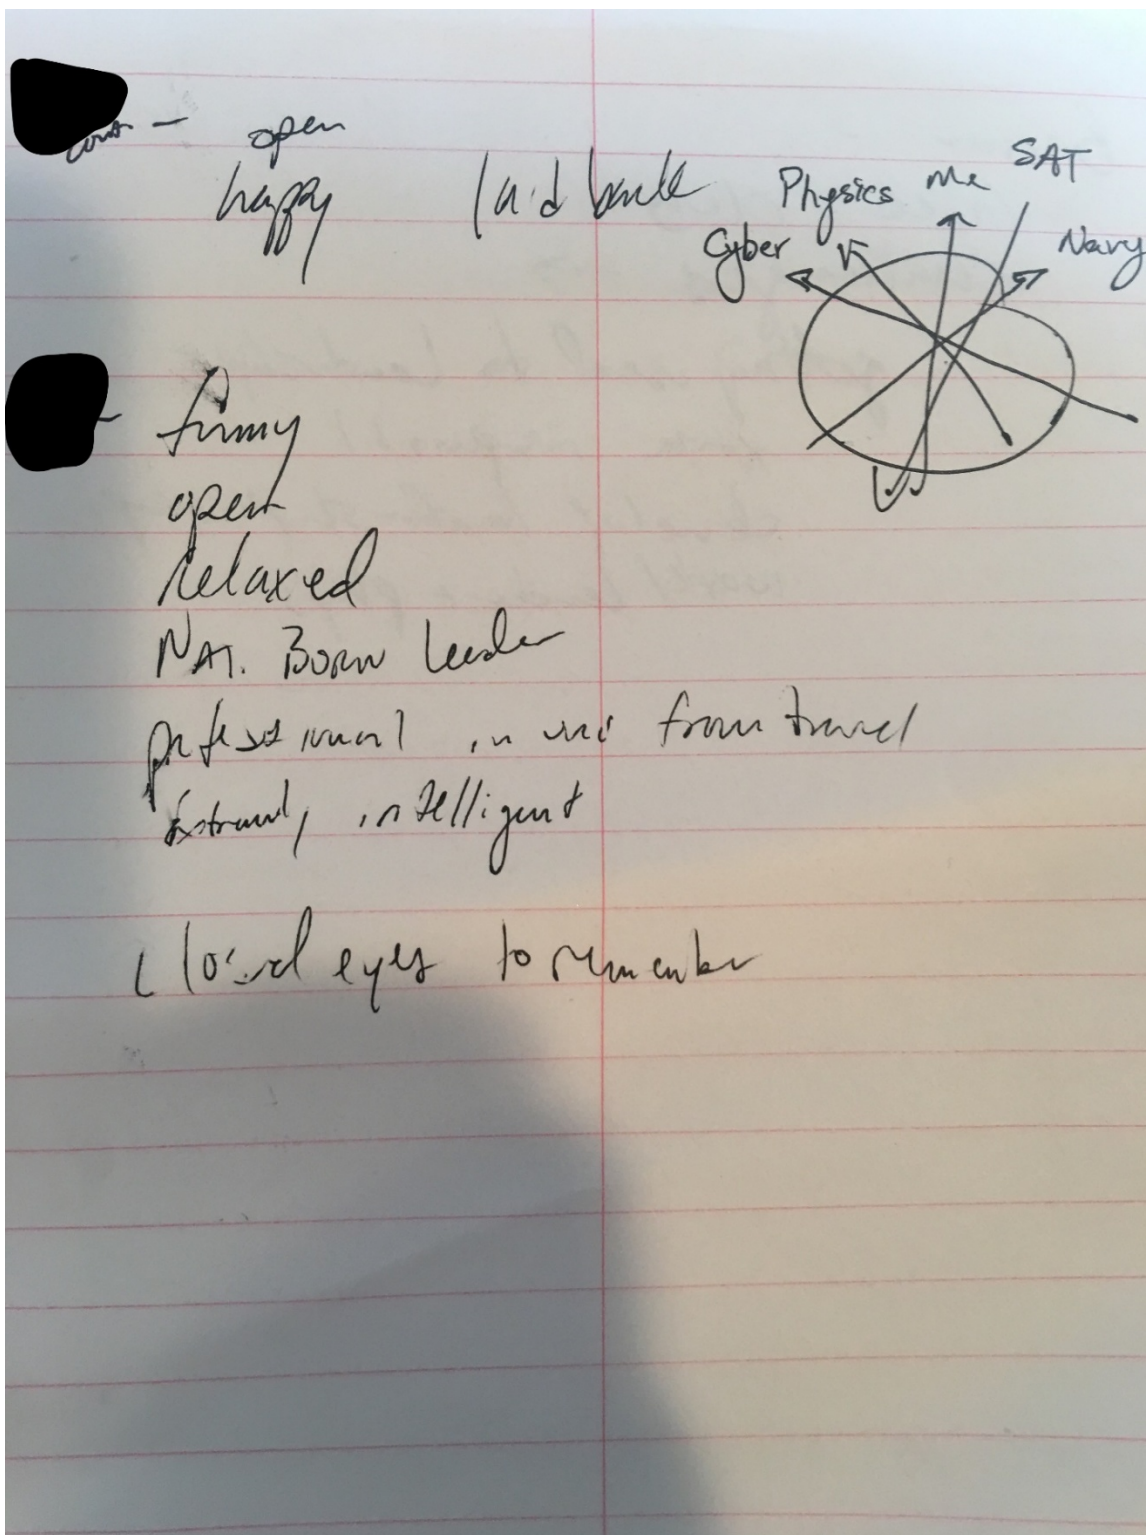 open
happy laid back
SAT
Physics Me
Cyber Navy
funny
open
relaxed
NAT. BORN leader
professional in uni from travel
Extremely intelligent
Closed eyes to remember